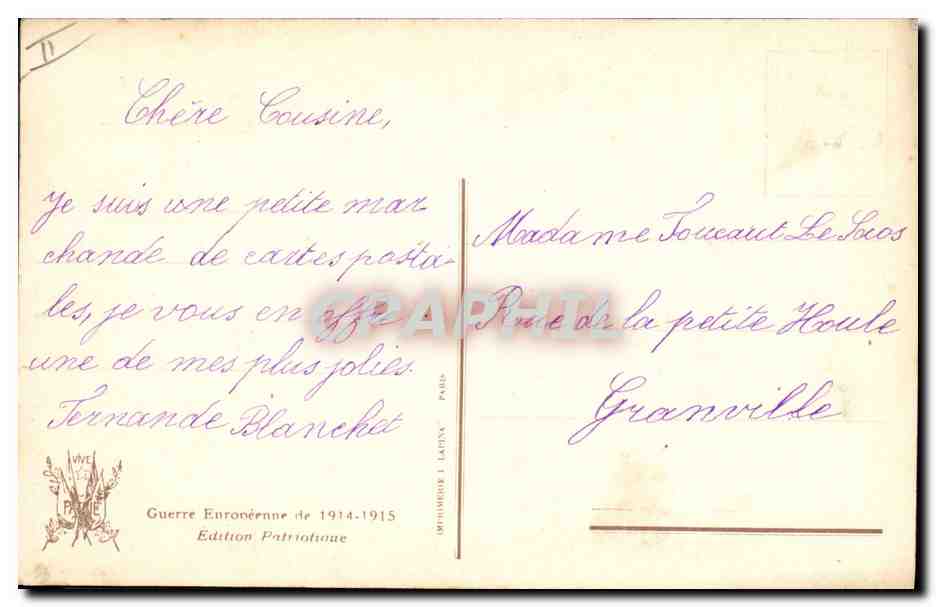 II
Chère Cousine,
Je suis une petite mar
chande de cartes posta-
les, je vous en offre
une de mes plus jolies.
Fernande Blanchet
VIVE
LA
PATRIE
Guerre Européenne de 1914-1915
Édition Patriotique
IMPRIMERIE I. LAPINA PARIS
Madame Foucaut Le Sros
Rue de la petite Houle
Granville
GRAPHIL